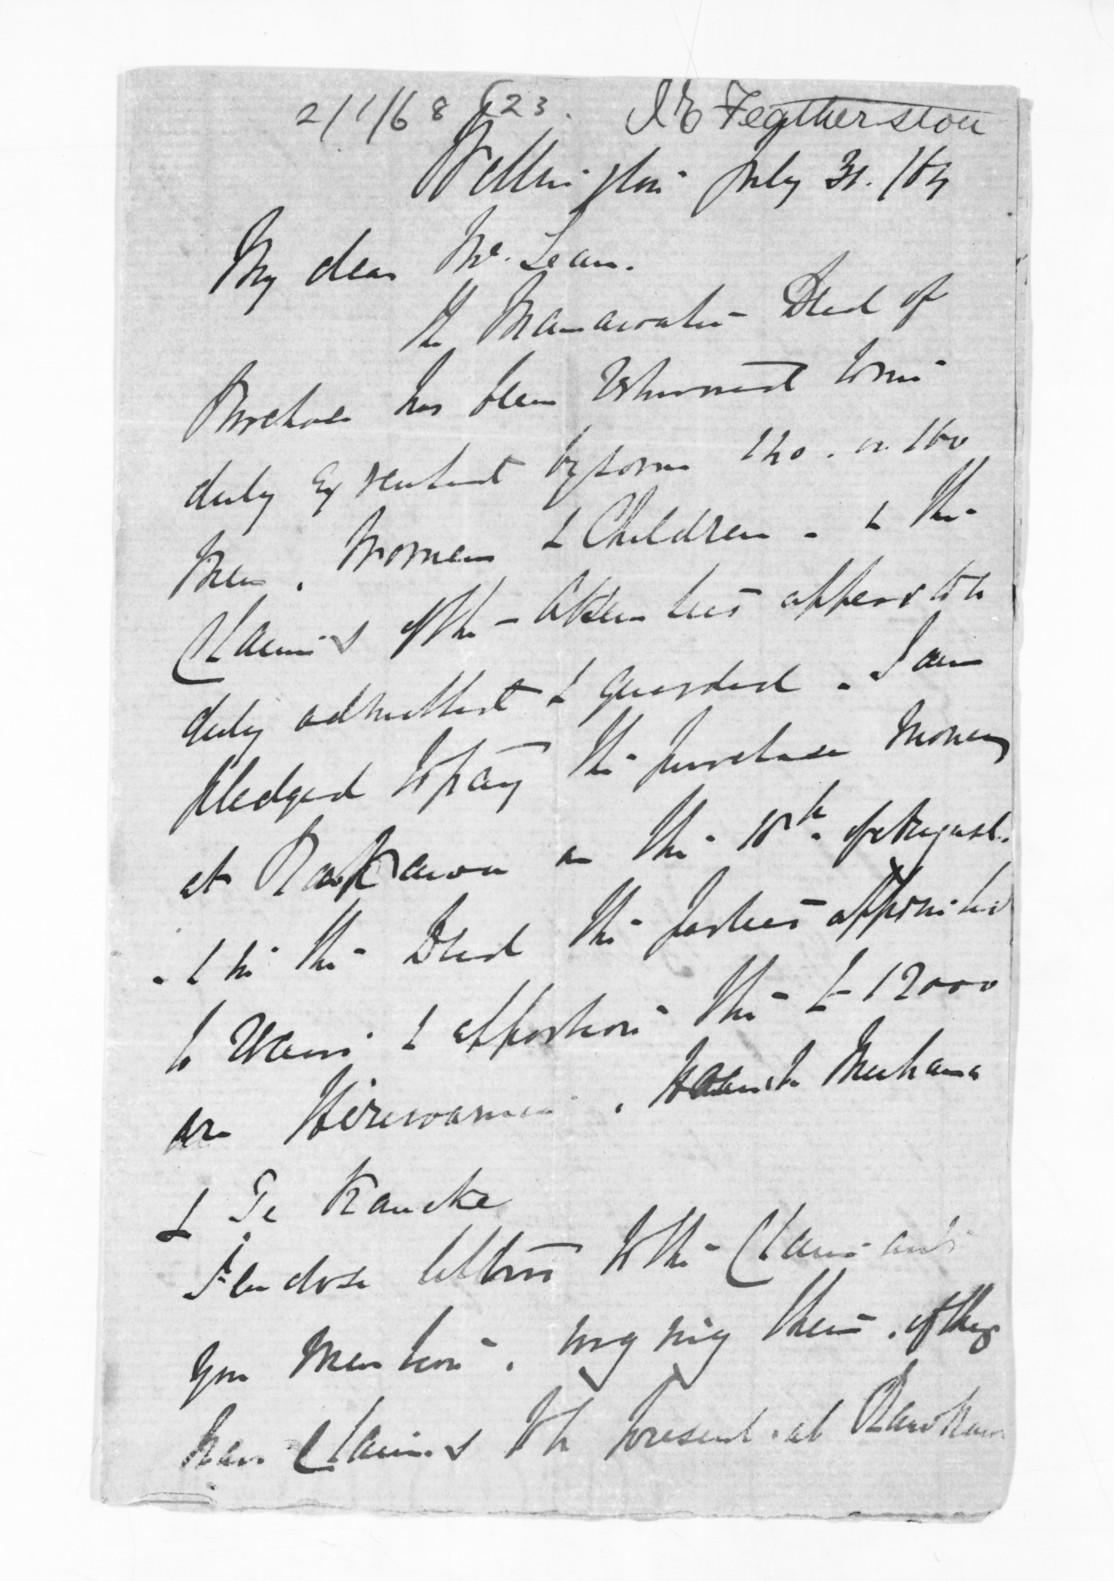 2/1/68 23. I E Featherston
Wellington July 31. /64
My dear McLean.
The Manawatu Deed of
Purchase has been returned to me
duly executed by some 140. or 160
Men, Women & Children. & the
Claims of the absentees appear to be
duly admitted & guarded. I am
pledged to pay the purchase money
at Raukawa on the 18th of August.
& in the Deed the parties appointed
to receive & apportion the £12000
are Hirawanu, Hoani Meihana
& Te Rauoke
I enclose letters to the Claimants
you mention, urging them, if they
have Claims to be present at Raukawa